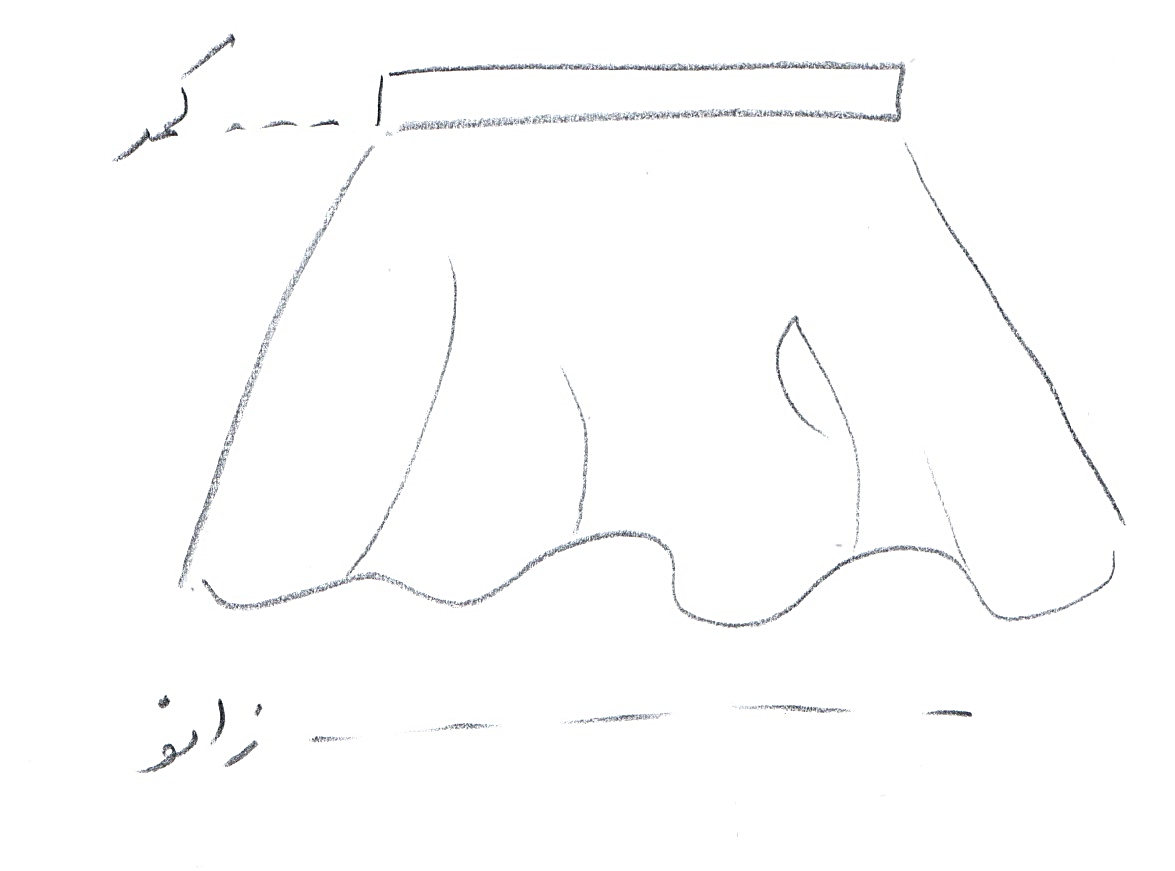 کمر
زانو